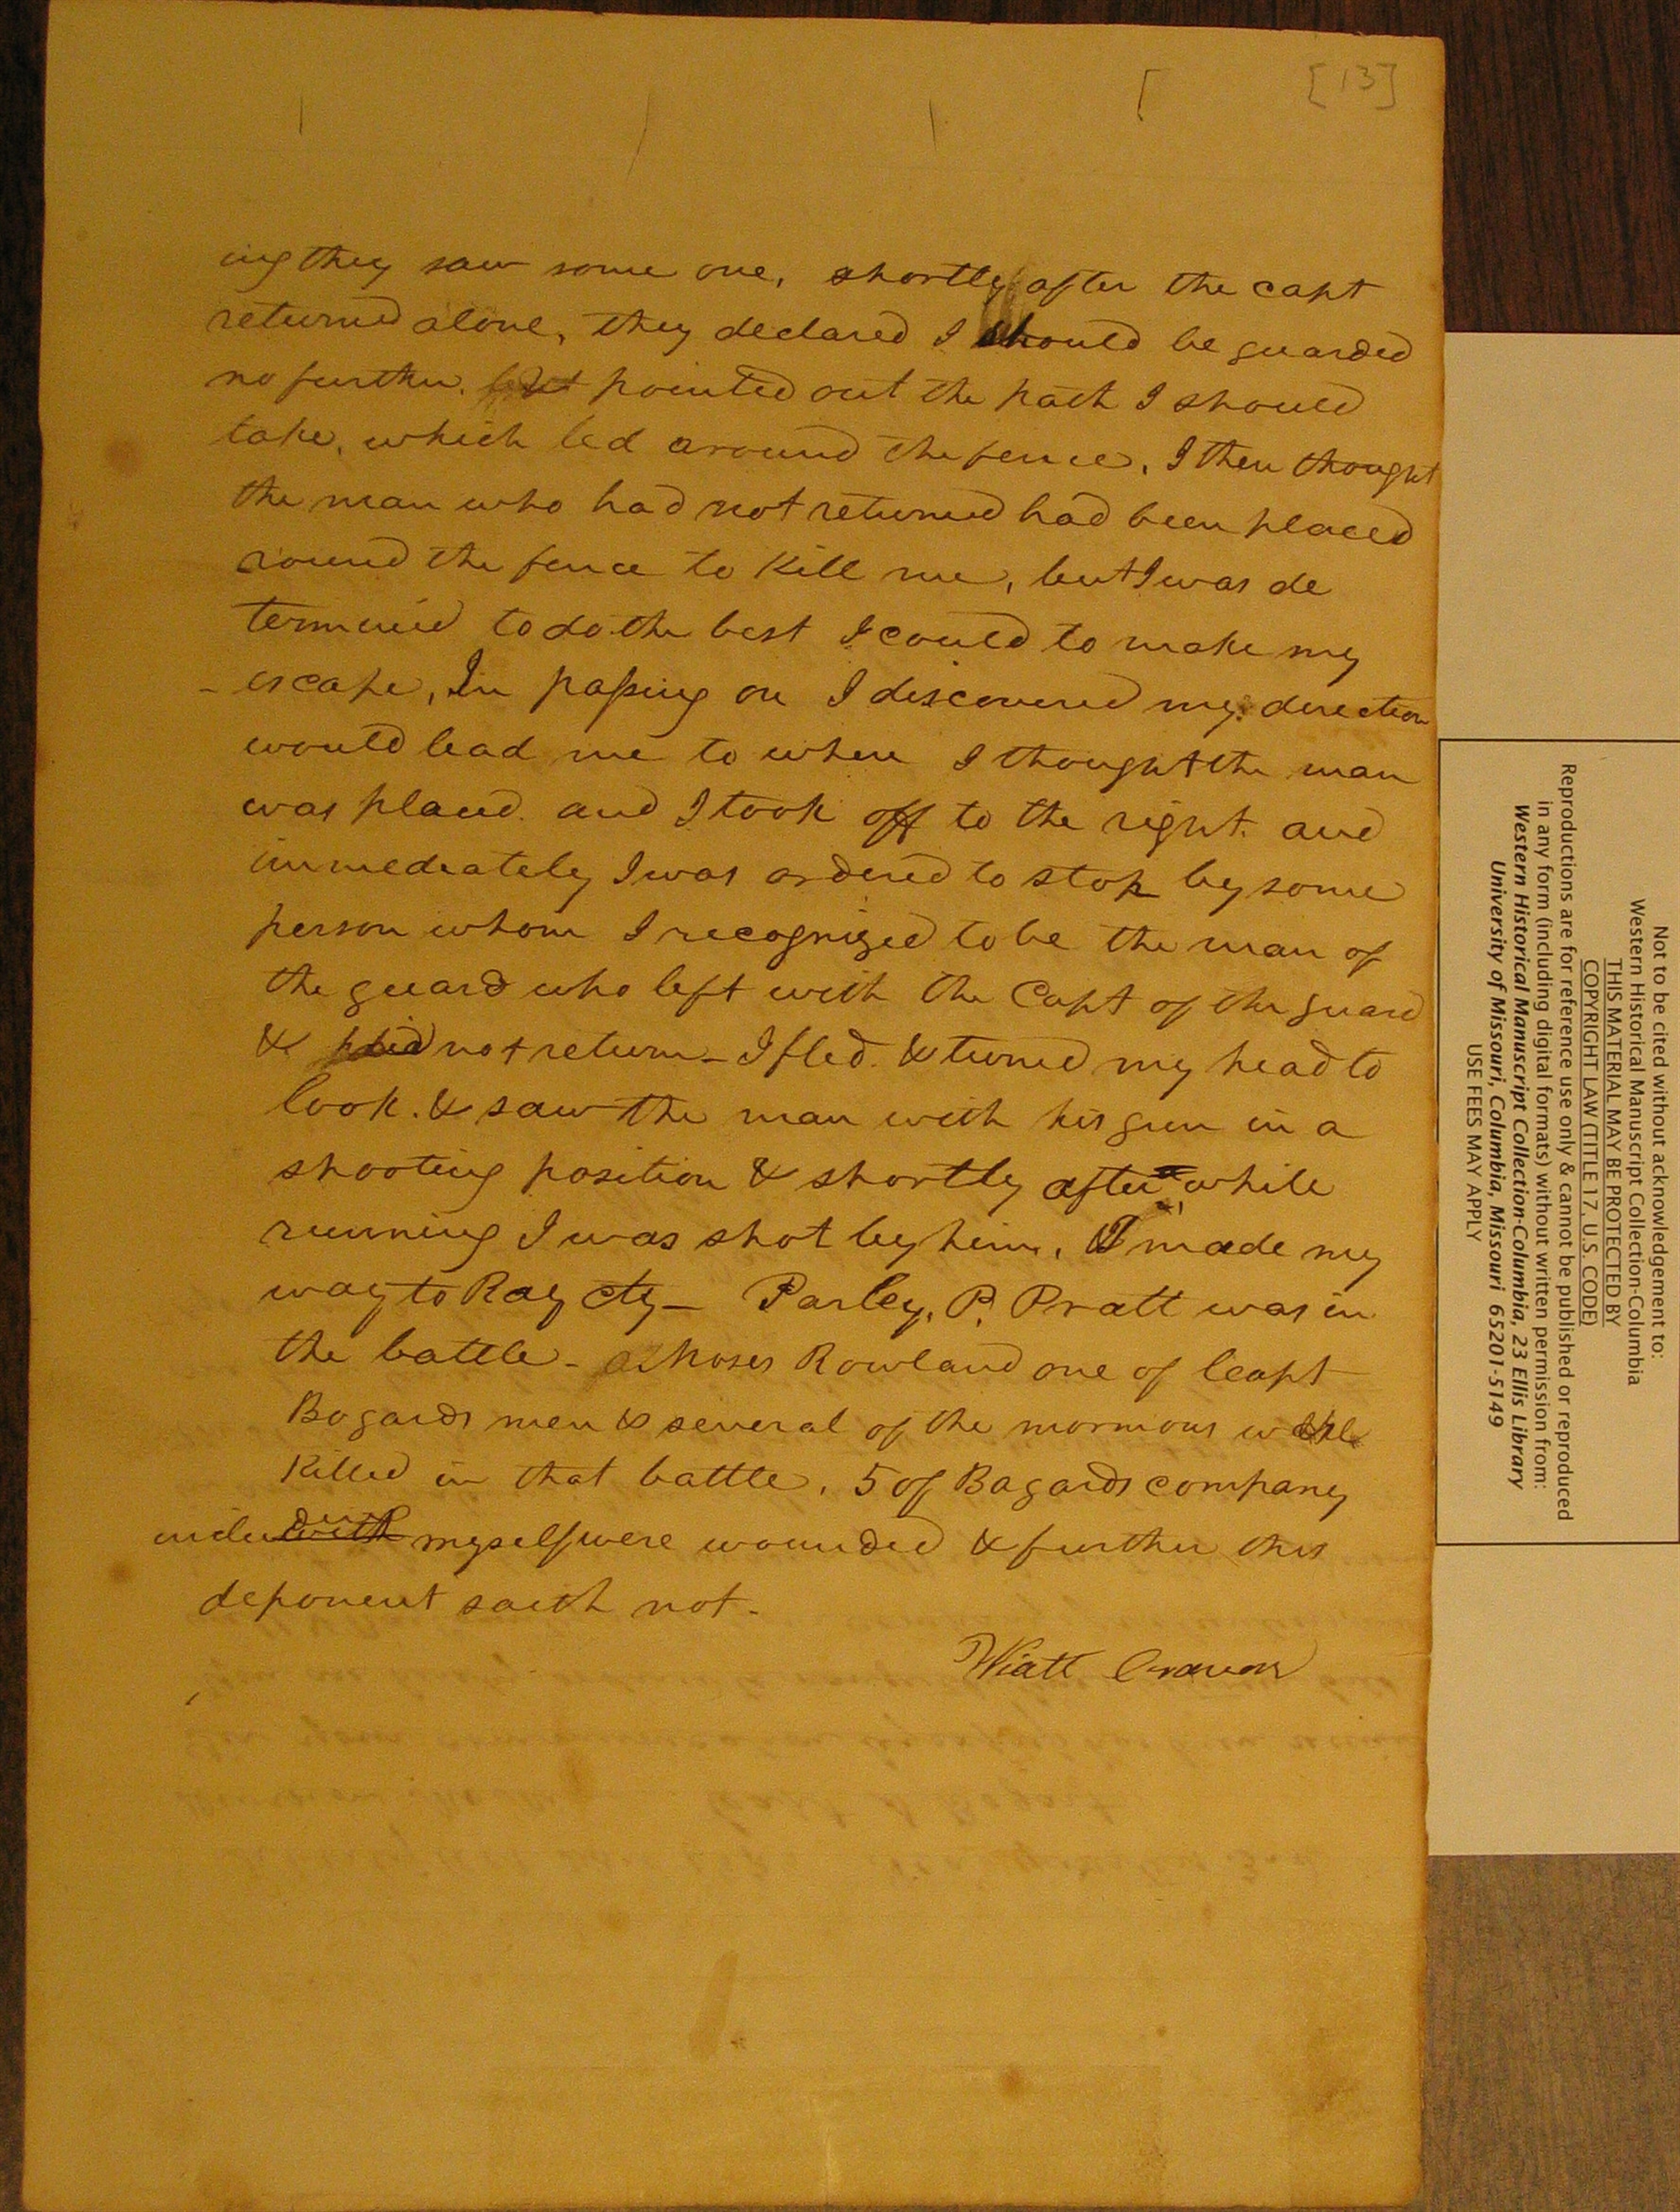 [13]
ing they saw some one, shortly after the capt
returned alone, they declared I should be guarded
no further. but pointed out the path I should
take, which led around the fence, I then thought
the man who had not returned had been placed
round the fence to Kill me, but I was de
termined to do the best I could to make my
- escape, In passing on I discovered my direction
would lead me to where I thought the man
was placed. and I took off to the right. and
immediately I was ordered to stop by some
person whom I recognized to be the man of
the guard who left with the Capt of the guard
& did not return - I fled. & turned my head to
look. & saw the man with his gun in a
shooting position & shortly after while
running I was shot by him, I made my
way to Ray cty - Parley, P. Pratt was in
the battle - Moses Rowland one of Capt
Bogards men & several of the mormons were
Killed in that battle, 5 of Bagards company
myself were wounded & further this
deponent saith not -
Wiatt Cravens
Not to be cited without acknowledgement to:
Western Historical Manuscript Collection-Columbia
THIS MATERIAL MAY BE PROTECTED BY
COPYRIGHT LAW (TITLE 17, U.S. CODE)
Reproductions are for reference use only & cannot be published or reproduced
in any form (including digital formats) without written permission from:
Western Historical Manuscript Collection-Columbia, 23 Ellis Library
University of Missouri, Columbia, Missouri 65201-5149
USE FEES MAY APPLY